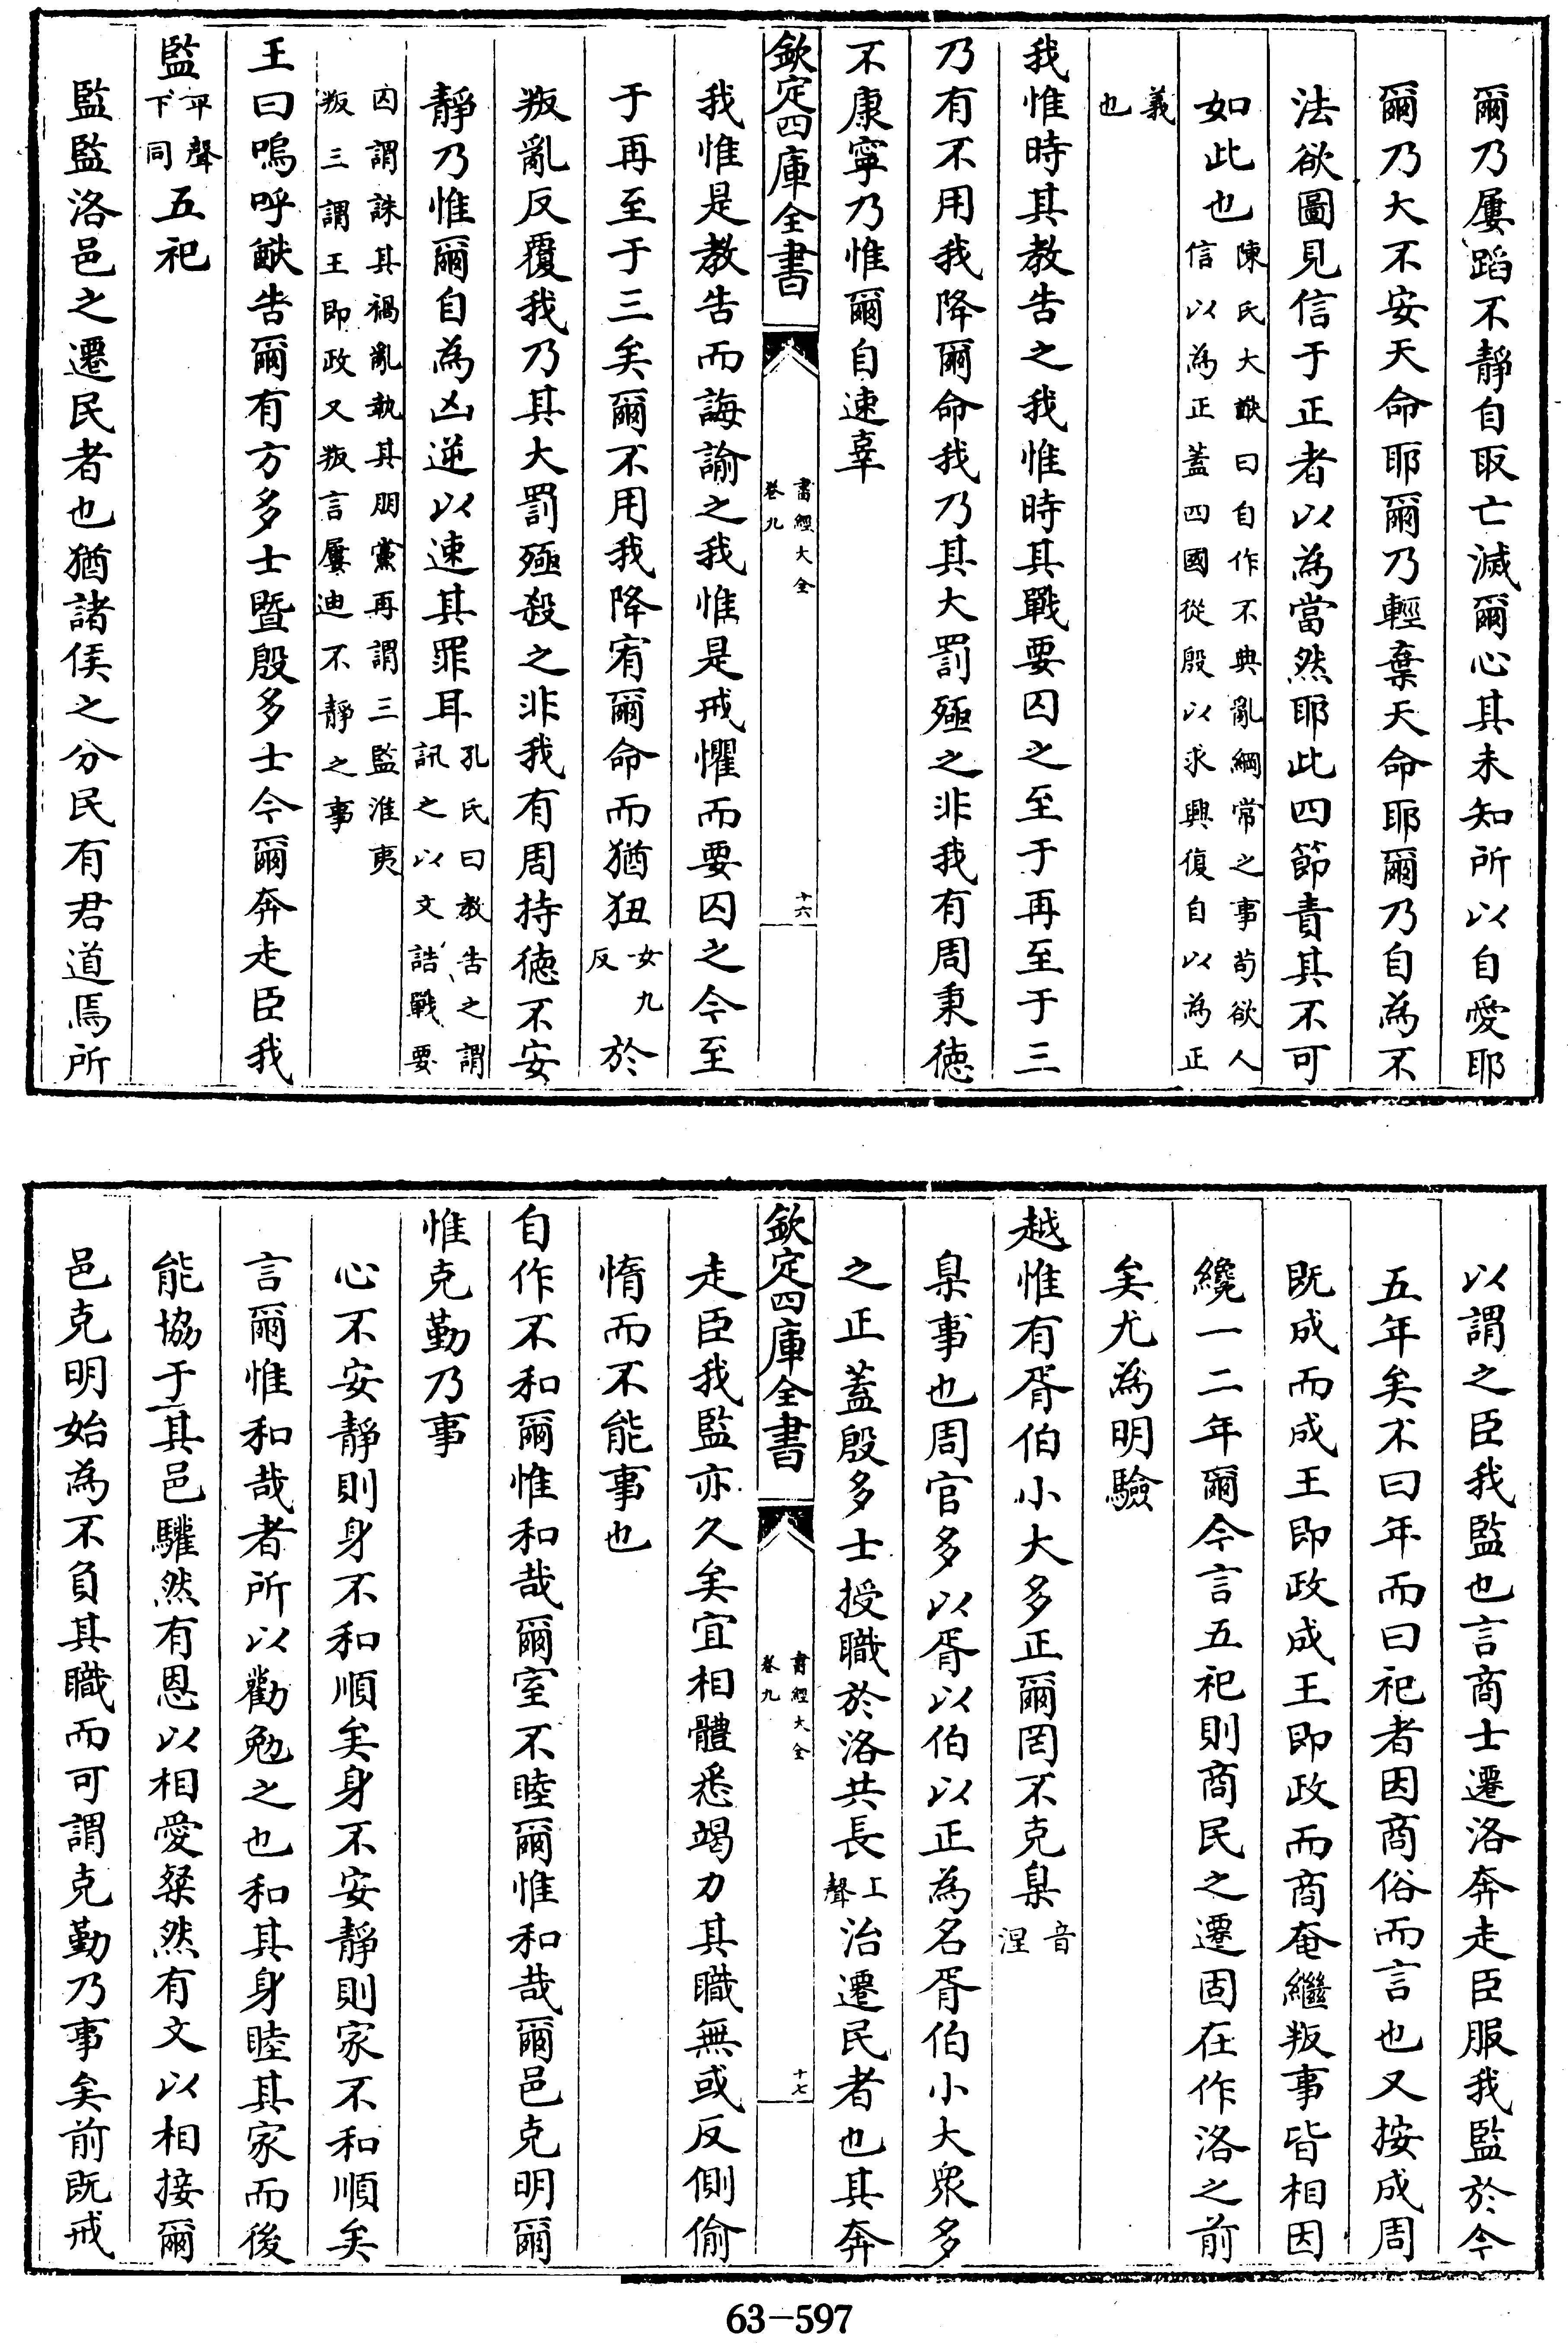 爾乃屢蹈不靜自取亡滅爾心其未知所以自愛耶
爾乃大不安天命耶爾乃輕棄天命耶爾乃自為不
法欲圖見信于正者以為當然耶此四節責其不可
如此也陳氏大猷曰自作不典亂綱常之事茍欲人
信以為正蓋四國從殷以求興復自以為正
義
也
我惟時其教告之我惟時其戰要囚之至于再至于三
乃有不用我降爾命我乃其大罰殛之非我有周秉徳
不康寧乃惟爾自速辜
欽定四庫全書
書經大全
卷九
十六
我惟是教告而誨諭之我惟是戒懼而要囚之今至
于再至于三矣爾不用我降宥爾命而猶狃女九
反於
叛亂反覆我乃其大罰殛殺之非我有周持徳不安
靜乃惟爾自為凶逆以速其罪耳孔氏曰教告之謂
訊之以文誥戰要
囚謂誅其禍亂執其朋黨再謂三監淮夷
叛三謂王即政又叛言屢迪不靜之事
王曰嗚呼猷告爾有方多士暨殷多士今爾奔走臣我
監平聲
下同五祀
監監洛邑之遷民者也猶諸侯之分民有君道焉所
以謂之臣我監也言商士遷洛奔走臣服我監於今
五年矣不曰年而曰祀者因商俗而言也又按成周
既成而成王即政成王即政而商奄繼叛事皆相因
纔一二年爾今言五祀則商民之遷固在作洛之前
矣尤為明驗
越惟有胥伯小大多正爾罔不克臬音
涅
臬事也周官多以胥以伯以正為名胥伯小大衆多
之正蓋殷多士授職於洛共長上
聲治遷民者也其奔
欽定四庫全書
書經大全
卷九
十七
走臣我監亦久矣宜相體悉竭力其職無或反側偷
惰而不能事也
自作不和爾惟和哉爾室不睦爾惟和哉爾邑克明爾
惟克勤乃事
心不安靜則身不和順矣身不安靜則家不和順矣
言爾惟和哉者所以勸勉之也和其身睦其家而後
能協于其邑驩然有恩以相愛粲然有文以相接爾
邑克明始為不負其職而可謂克勤乃事矣前既戒
63-597